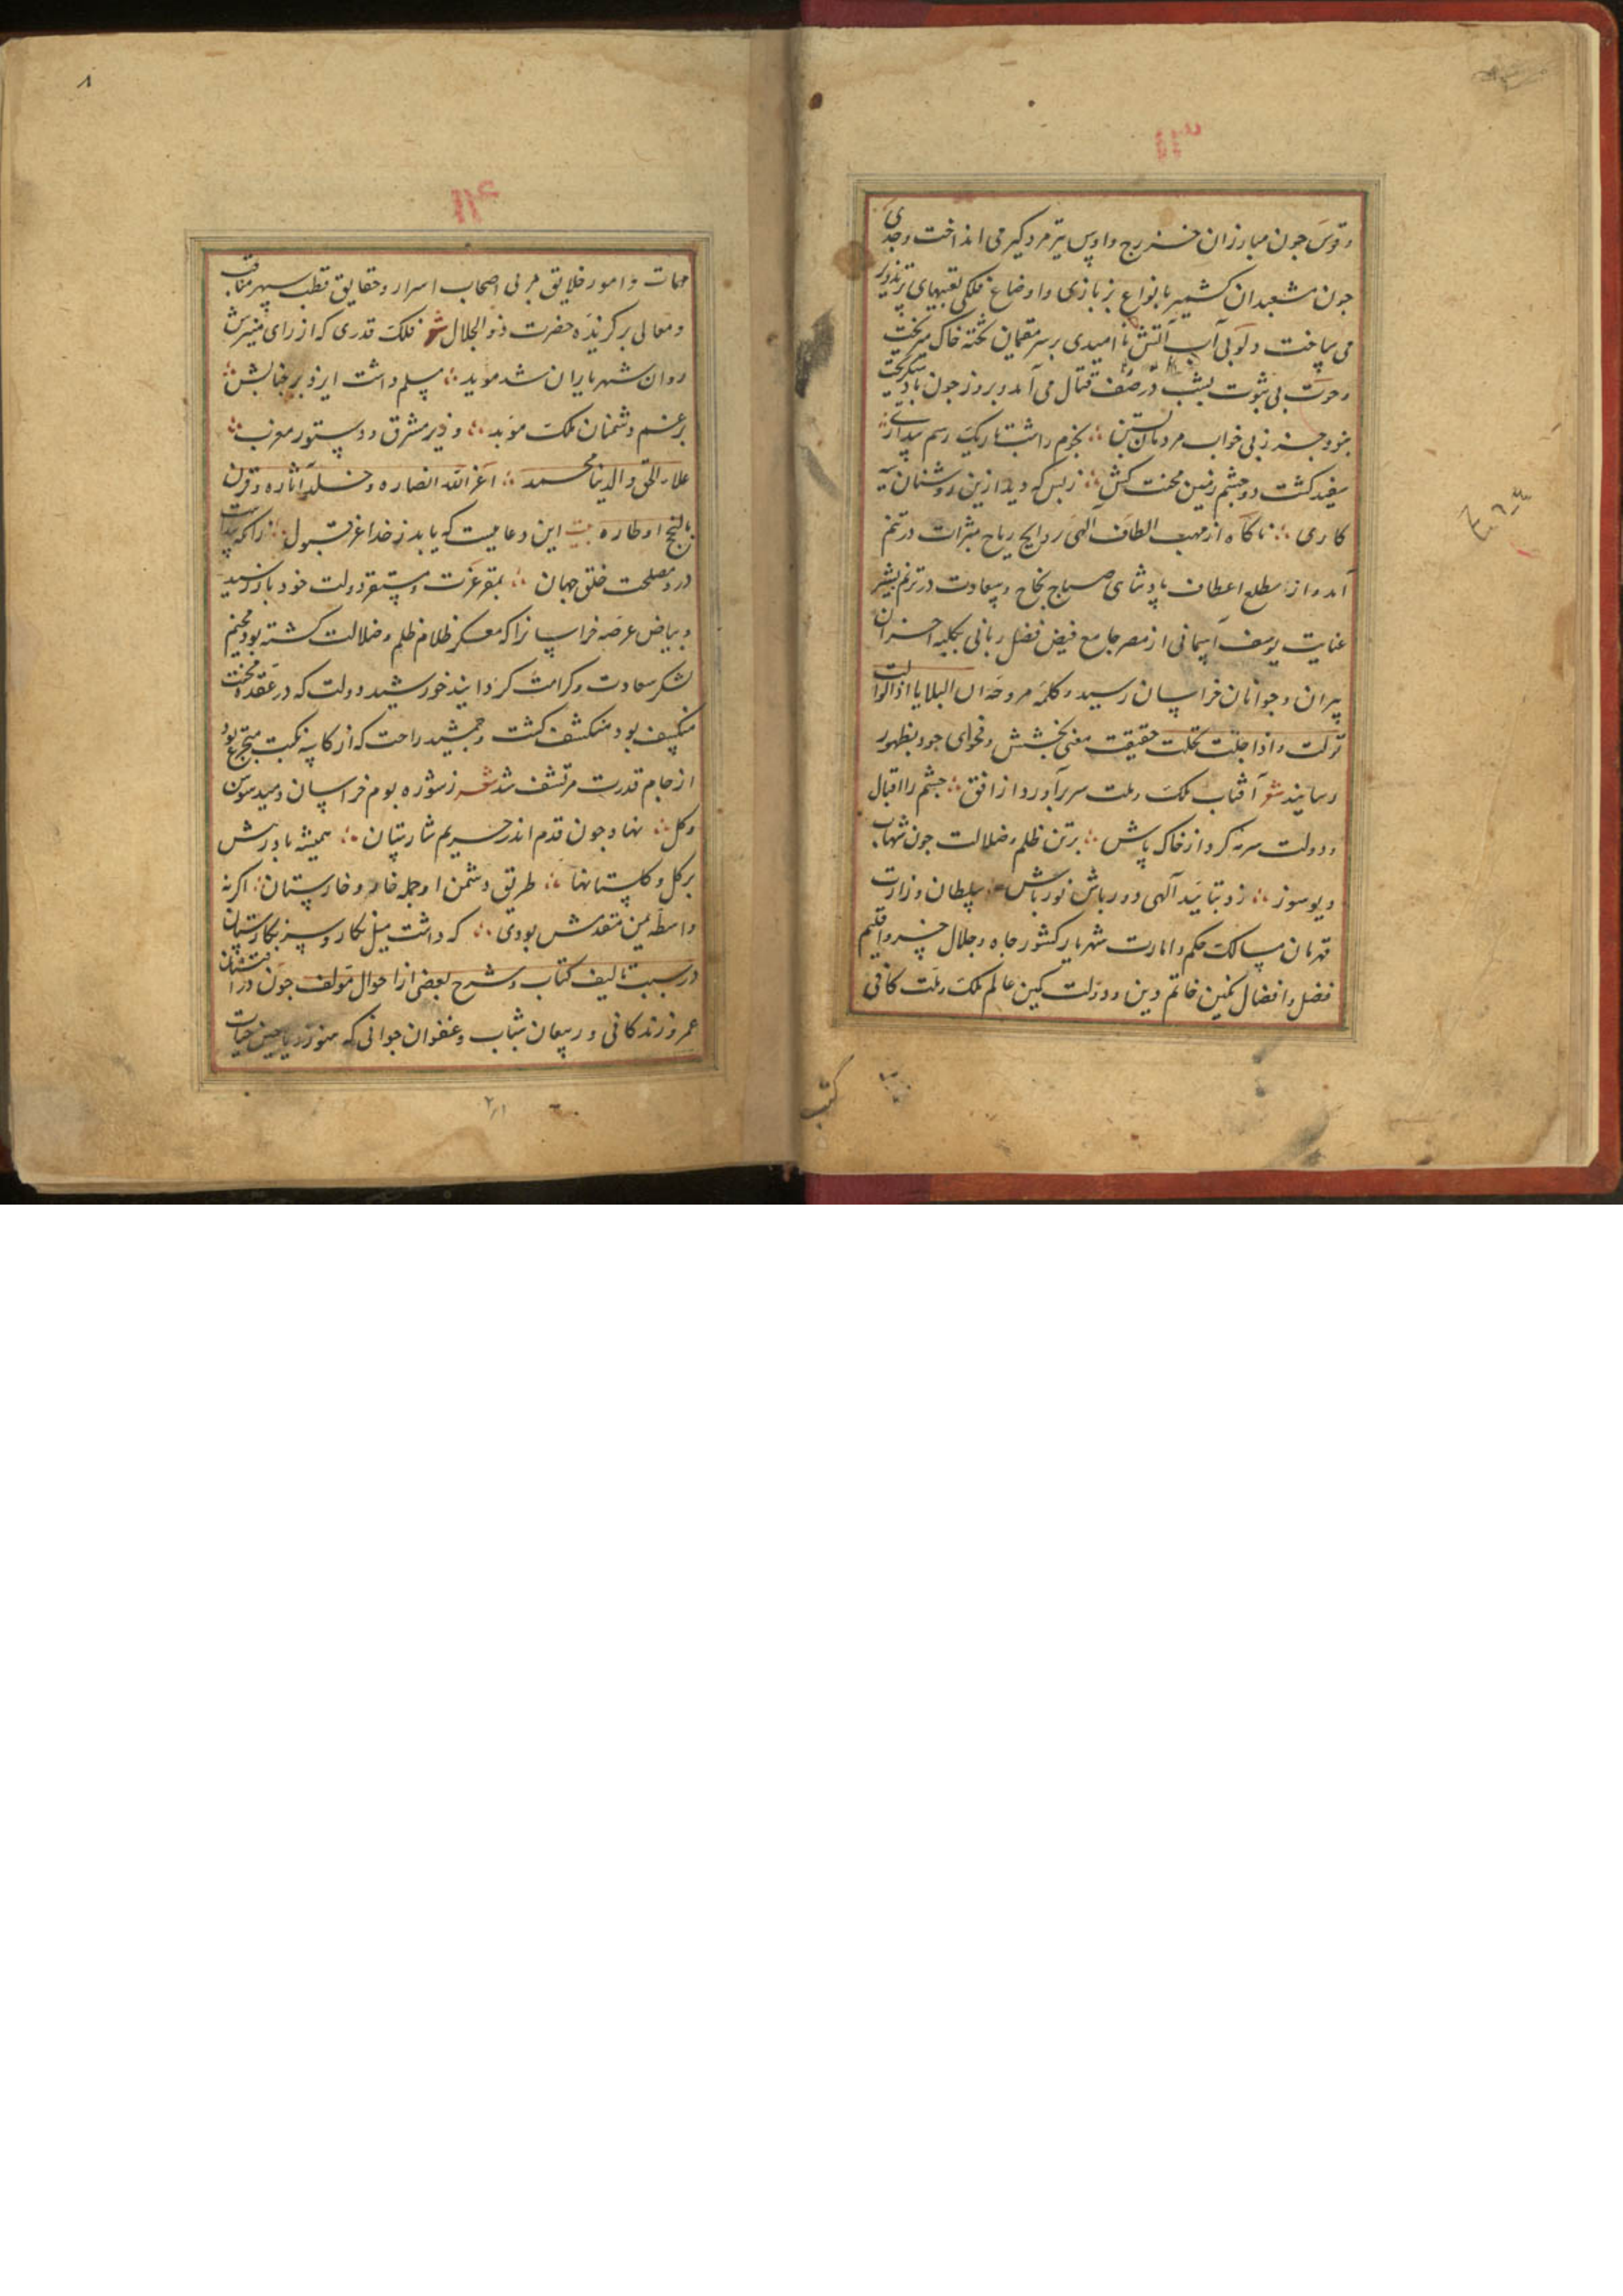 ۱۱۳
و قوس جون مبارزان خزرج و اوس تیر مردکیر می انداخت و جدی
جون مشعبدان کشمیر بانواع بزبازی و اوضاع فلکی تعبیهای پرتذویر
می ساخت و دلو بی آب آتش نا امیدی بر سر مقیمان تخته خاک میریخت
و حوت بی ثبوت بشب در صف قتال می آمد و بروز جون باد میکریخت
نبود جز ز بی خواب مردمان بنجوم را شب تاریک رسم بیداری
سفید کشت دو جشم زمین محنت کش ز بس که دید ازین روشنان
کاری ناکاه از مهب الطاف الهی روایح ریاح مبشرات در تنسم
آمد و از مطلع اعطاف پادشاهی صباح نجاح و سعادت در تبسم بشیر
عنایت یوسف آسمانی از مصر جامع فیض فضل ربانی بکلبه احزان
پیران و جوانان خراسان رسید و کلمه مروحه ان البلایا اذا توالت
تولت و اذا جلت تجلت حقیقت معنی بخشش و فحوای جود بظهور
رسانید شعر آفتاب ملک و ملت سر برآورد از افق جشم را اقبال
و دولت سرمه کرد از خاک پاش بر تن ظلم و ضلالت جون شهاب
دیو سوز زد بتایید الهی دورباش نورباش سلطان وزارت
قهرمان مسالک حکم و امارت شهریار کشور جاه و جلال خسرو اقلیم
فضل و افضال نکین خاتم دین و دولت کین عالم ملک و ملت کافی
۸
۱۱۴
مهمات و امور خلایق مربی اصحاب اسرار و حقایق قطب سپهر مناقب
و معالی برکزیده حضرت ذو الجلال شعر فلک قدری که از رای منیرش
روان شهریاران شد موید مسلم داشت ایزد بر جنابش
برغم دشمنان ملک موبد وزیر مشرق و دستور مغرب
علاء الحق و الدنیا محمد اعز الله انصاره و خلد آثاره و قرن
بالنجح اوطاره بیت این دعاییست که یابد ز خدا عز قبول زانکه پیداست
درو مصلحت خلق جهان بمقر عزت و مستقر دولت خود باز رسید
و بیاض عرصه خراسانرا که معسکر ظلام ظلم و ضلالت کشته بود مخیم
لشکر سعادت و کرامت کردانید خورشید دولت که در عقده محنت
منکسف بود منکشف کشت و جمشید راحت که از کاسه نکبت متجرع بود
از جام قدرت مرتشف شد شعر ز شوره بوم خراسان دمید سوسن
و کل نهاد جون قدم اندر حریم شارستان همیشه باد رهش
بر کل و کلستانها طریق دشمن او جمله خار و خارستان اکر نه
واسطه یمن مقدمش بودی که داشت میل نکار و سر نکارستان
در سبب تالیف کتاب و شرح بعضی از احوال مؤلف جون در
عمر و زندکانی و ریعان شباب و عنفوان جوانی که هنوز ریاحین حیات